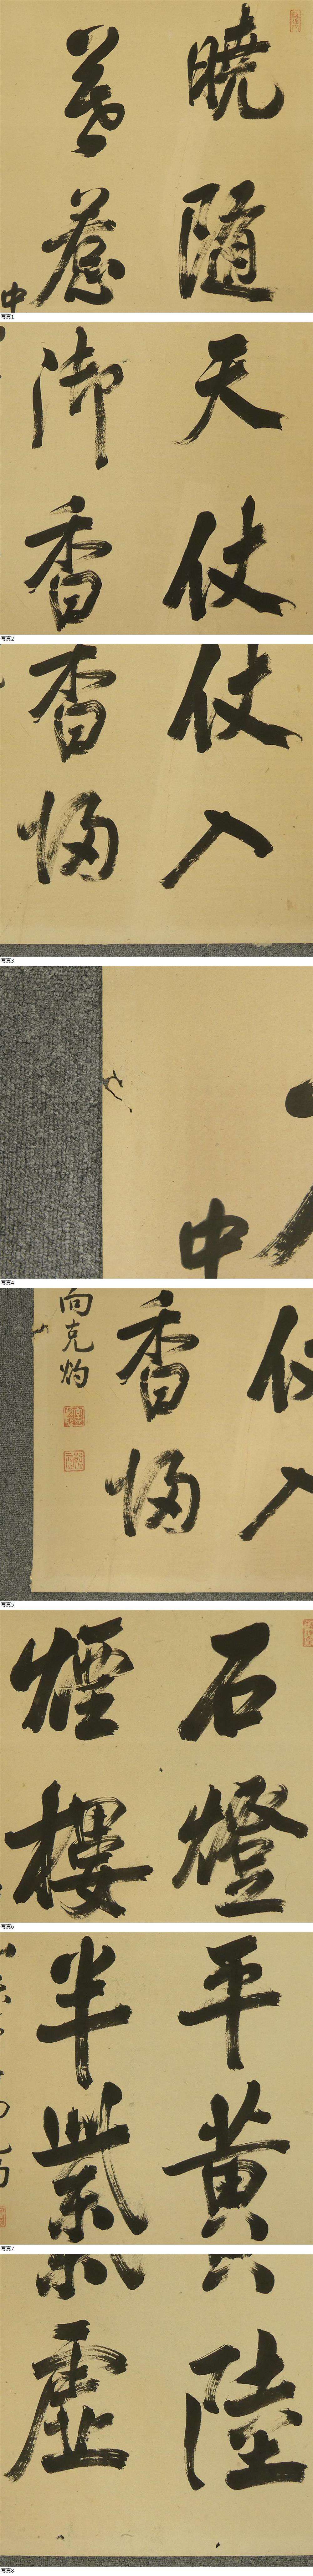 曉隨
暮惹
中
写真1
天仗
御香
写真2
仗入
香歸
写真3
中
写真4
入
香歸
向克灼
写真5
石燈
煙樓
写真6
平黃
半紫
写真7
陸
虛
写真8